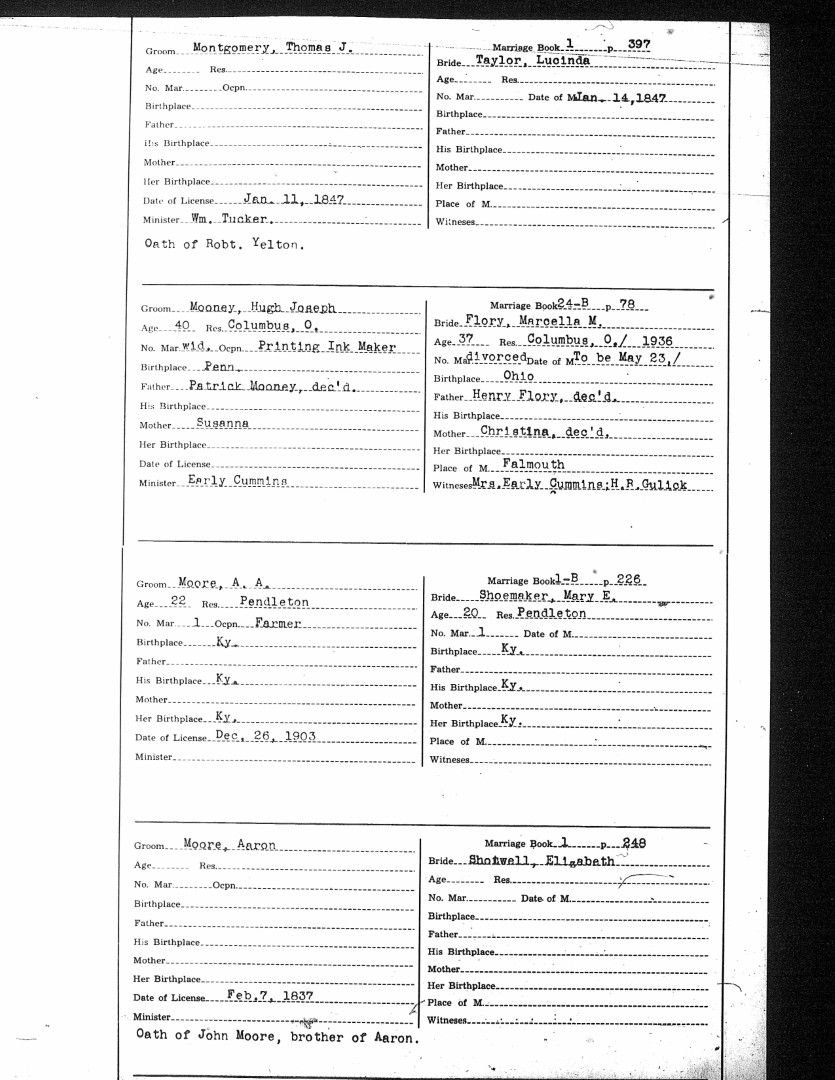 Groom Montgomery, Thomas J.
Age Res.
No. Mar. Ocpn.
Birthplace
Father
His Birthplace
Mother
Her Birthplace
Date of License Jan. 11, 1847
Minister Wm. Tucker.
Oath of Robt. Yelton.
Marriage Book 1 p. 397
Bride Taylor, Lucinda
Age Res.
No. Mar. Date of M. Jan. 14,1847
Birthplace
Father
His Birthplace
Mother
Her Birthplace
Place of M.
Witnesses
Groom Mooney, Hugh Joseph
Age 40 Res. Columbus, O.
No. Mar. wid. Ocpn. Printing Ink Maker
Birthplace Penn.
Father Patrick Mooney, dec'd.
His Birthplace
Mother Susanna
Her Birthplace
Date of License
Minister Early Cummins
Marriage Book 24-B p. 78
Bride Flory, Marcella M.
Age 37 Res. Columbus, O./ 1936
No. Mar. divorced Date of M. To be May 23,/
Birthplace Ohio
Father Henry Flory, dec'd.
His Birthplace
Mother Christina, dec'd.
Her Birthplace
Place of M. Falmouth
Witnesses Mrs.Early Cummins;H.R.Gulick
Groom Moore, A. A.
Age 22 Res. Pendleton
No. Mar. 1 Ocpn. Farmer
Birthplace Ky.
Father
His Birthplace Ky.
Mother
Her Birthplace Ky.
Date of License Dec. 26, 1903
Minister
Marriage Book 1-B p. 226
Bride Shoemaker, Mary E.
Age 20 Res. Pendleton
No. Mar. 1 Date of M.
Birthplace Ky.
Father
His Birthplace Ky.
Mother
Her Birthplace Ky.
Place of M.
Witnesses
Groom Moore, Aaron
Age Res.
No. Mar. Ocpn.
Birthplace
Father
His Birthplace
Mother
Her Birthplace
Date of License Feb.7, 1837
Minister
Oath of John Moore, brother of Aaron.
Marriage Book 1 p. 248
Bride Shotwell, Elizabeth
Age Res.
No. Mar. Date of M.
Birthplace
Father
His Birthplace
Mother
Her Birthplace
Place of M.
Witnesses